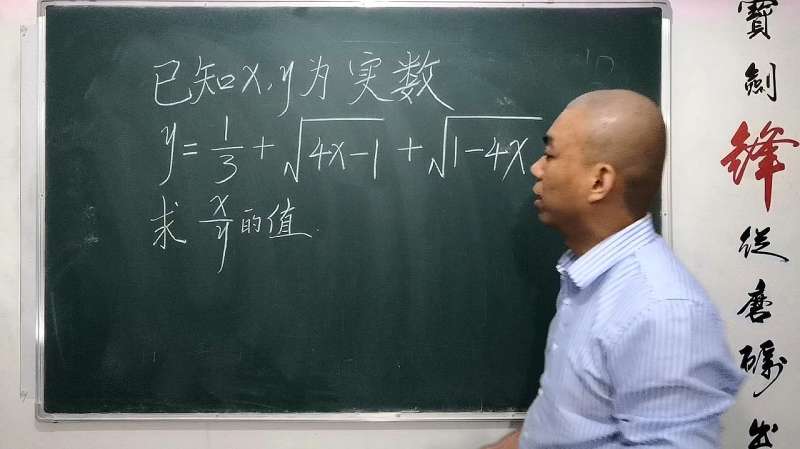 已知x,y为实数
y=\frac{1}{3}+\sqrt{4x-1}+\sqrt{1-4x}
求\frac{x}{y}的值.
寶劍鋒從磨礪出